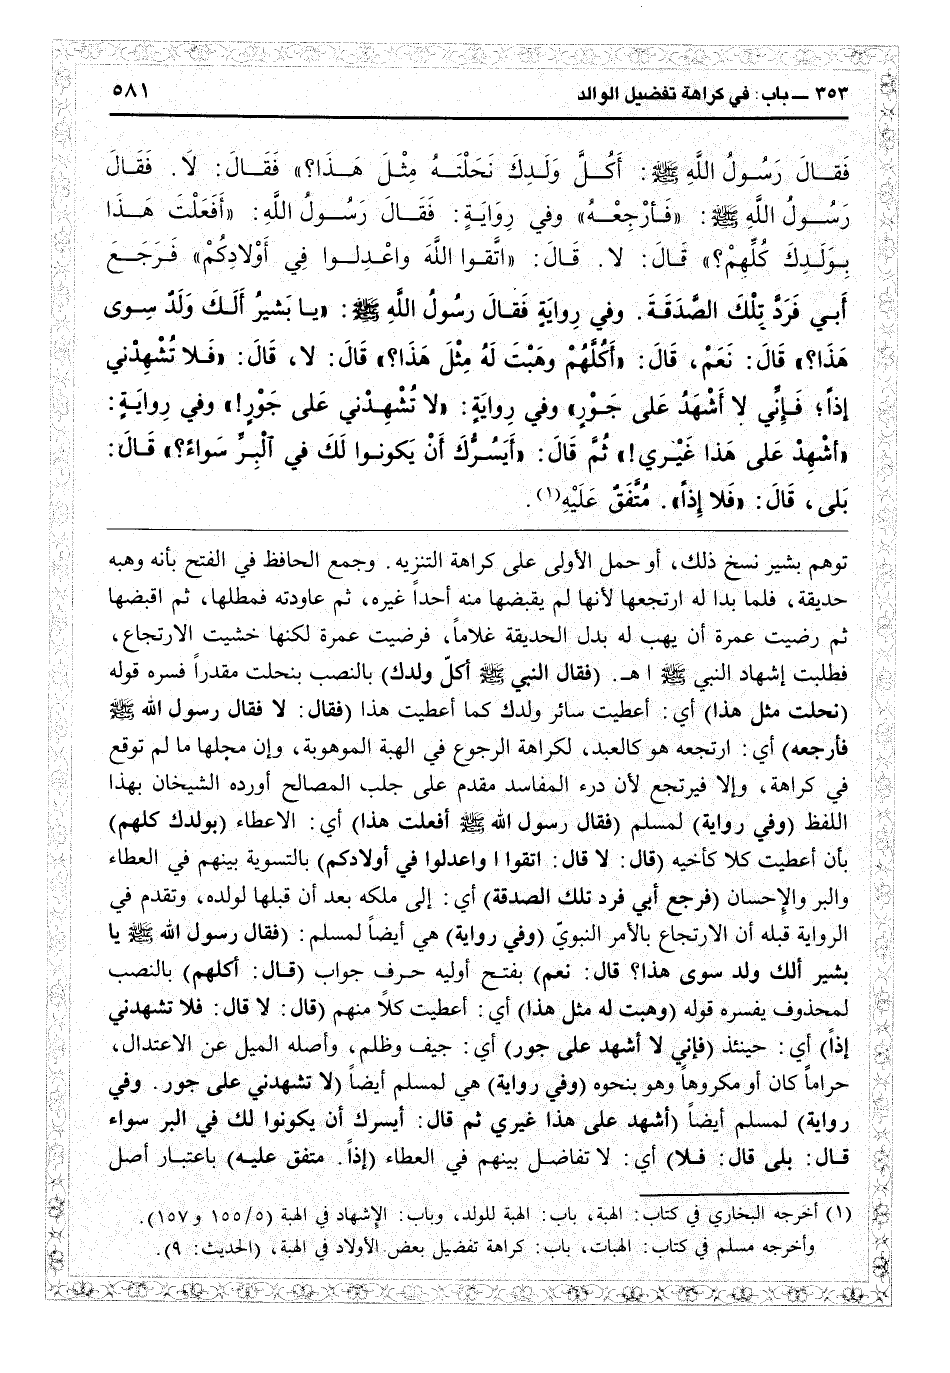 ٣٥٣ ــ باب: في كراهة تفضيل الوالد ٥٨١
فَقَـالَ رَسُـولُ اللَّهِ ﷺ: أَكُـلَّ وَلَدِكَ نَحَلْتَـهُ مِثْلَ هَـذَا؟» فَقَـالَ: لَا. فَقَالَ
رَسُـولُ اللَّهِ ﷺ: «فَـأرْجِعْـهُ» وفي رِوَايَـةٍ: فَقَـالَ رَسُـولُ اللَّهِ: «أَفَعَلْتَ هَـذَا
بِـوَلَـدِكَ كُلِّهِمْ؟» قَـالَ: لا. قَـالَ: «اتَّقـوا اللَّهَ واعْـدِلـوا فِي أَوْلادِكُمْ» فَـرَجَـعَ
أَبـي فَرَدَّ تِلْكَ الصَّدَقَـةَ. وفي رِوايَةٍ فَقـالَ رسُولُ اللَّهِ ﷺ: «يـا بَشيرُ أَلَـكَ وَلَدٌ سِـوى
هَذَا؟» قَالَ: نَعَمْ، قَالَ: «أَكُلَّهُمْ وهَبْتَ لَهُ مِثْلَ هَذَا؟» قَالَ: لا، قَالَ: «فَـلا تُشْهِدْني
إذاً؛ فَـإنِّي لا أَشْهَدُ عَلى جَـوْرٍ» وفي رِوايَةٍ: «لا تُشْهِدْني عَلى جَوْرٍ!» وفي رِوايَـةٍ:
«أشْهِدْ عَلى هَذا غَيْـري!» ثُمَّ قَالَ: «أَيَسُرُّكَ أَنْ يَكونـوا لَكَ في ٱلْبِرِّ سَواءً؟» قَـالَ:
بَلى، قَالَ: «فَلا إذاً». مُتَّفَقٌ عَلَيْهِ(١).
توهم بشير نسخ ذلك، أو حمل الأولى على كراهة التنزيه. وجمع الحافظ في الفتح بأنه وهبه
حديقة، فلما بدا له ارتجعها لأنها لم يقبضها منه أحداً غيره، ثم عاودته فمطلها، ثم اقبضها
ثم رضيت عمرة أن يهب له بدل الحديقة غلاماً، فرضيت عمرة لكنها خشيت الارتجاع،
فطلبت إشهاد النبي ﷺ ا هـ. (فقال النبي ﷺ أكلّ ولدك) بالنصب بنحلت مقدراً فسره قوله
(نحلت مثل هذا) أي: أعطيت سائر ولدك كما أعطيت هذا (فقال: لا فقال رسول الله ﷺ
فأرجعه) أي: ارتجعه هو كالعبد، لكراهة الرجوع في الهبة الموهوبة، وإن مجلها ما لم توقع
في كراهة، وإلا فيرتجع لأن درء المفاسد مقدم على جلب المصالح أورده الشيخان بهذا
اللفظ (وفي رواية) لمسلم (فقال رسول الله ﷺ أفعلت هذا) أي: الاعطاء (بولدك كلهم)
بأن أعطيت كلا كأخيه (قال: لا قال: اتقوا ا واعدلوا في أولادكم) بالتسوية بينهم في العطاء
والبر والإحسان (فرجع أبي فرد تلك الصدقة) أي: إلى ملكه بعد أن قبلها لولده، وتقدم في
الرواية قبله أن الارتجاع بالأمر النبويّ (وفي رواية) هي أيضاً لمسلم: (فقال رسول الله ﷺ يا
بشير ألك ولد سوى هذا؟ قال: نعم) بفتح أوليه حرف جواب (قـال: أكلهم) بالنصب
لمحذوف يفسره قوله (وهبت له مثل هذا) أي: أعطيت كلاً منهم (قال: لا قال: فلا تشهدني
إذاً) أي: حينئذ (فإني لا أشهد على جور) أي: جيف وظلم، وأصله الميل عن الاعتدال،
حراماً كان أو مكروهاً وهو بنحوه (وفي رواية) هي لمسلم أيضاً (لا تشهدني على جور. وفي
رواية) لمسلم أيضاً (أشهد على هذا غيري ثم قال: أيسرك أن يكونوا لك في البر سواء
قـال: بلى قال: فـلا) أي: لا تفاضل بينهم في العطاء (إذاً. متفق عليه) باعتبار أصل
(١) أخرجه البخاري في كتاب: الهبة، باب: الهبة للولد، وباب: الإشهاد في الهبة (١٥٥/٥ و ١٥٧).
وأخرجه مسلم في كتاب: الهبات، باب: كراهة تفضيل بعض الأولاد في الهبة، (الحديث: ٩).